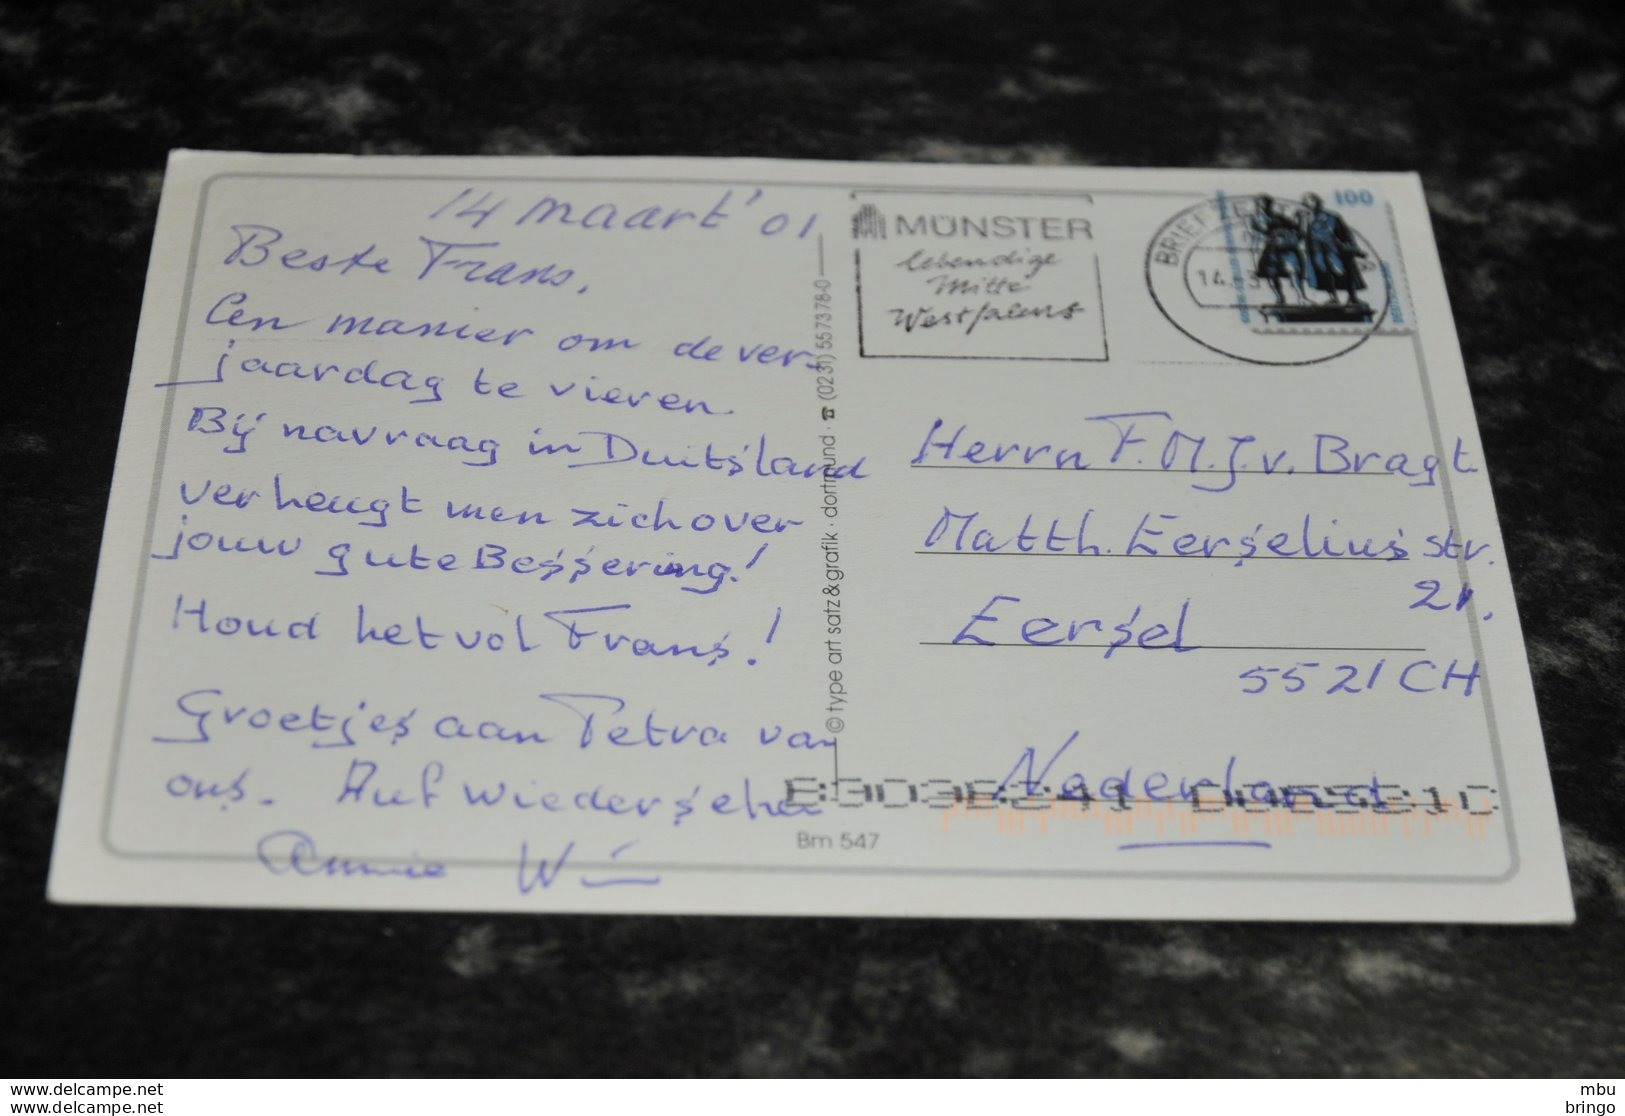 14 maart '01
Beste Frans,
Een manier om de ver-
jaardag te vieren.
Bij navraag in Duitsland
verheugt men zich over
jouw gute Bessering!
Houd het vol Frans!
Groetjes aan Petra van
ons. Auf wiedersehen
Annie W
© type art satz&grafik · dortmund · ☎ (0231) 557378-0
Bm 547
MÜNSTER
lebendige
Mitte
Westfalens
BRIEFZENTRUM
14.
100
Herrn F.M.J. v. Bragt
Matth. Eerselius str.
21.
Eersel
5521 CH
Nederland
www.delcampe.net
www.delcampe.net
mbu
bringo